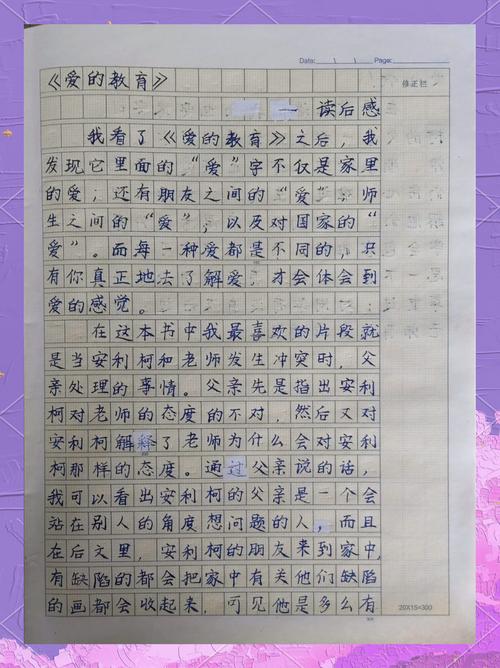 Date: \ \ Page:
《爱的教育》
修正栏
——读后感
我看了《爱的教育》之后，我
发现它里面的“爱”字不仅是家里
的爱；还有朋友之间的“爱”、师
生之间的“爱”，以及对国家的“
爱”。而每一种爱都是不同的，只
有你真正地去了解爱，才会体会到
爱的感觉。
在这本书中我最喜欢的片段就
是当安利柯和老师发生冲突时，父
亲处理的事情。父亲先是指出安利
柯对老师的态度的不对，然后又对
安利柯解释了老师为什么会对安利
柯那样的态度。通过父亲说的话，
我可以看出安利柯的父亲是一个会
站在别人的角度想问题的人，而且
在后文里，安利柯的朋友来到家中，
有缺陷的都会把家中有关他们缺陷
的画都会收起来，可见他是多么有
20X15=300